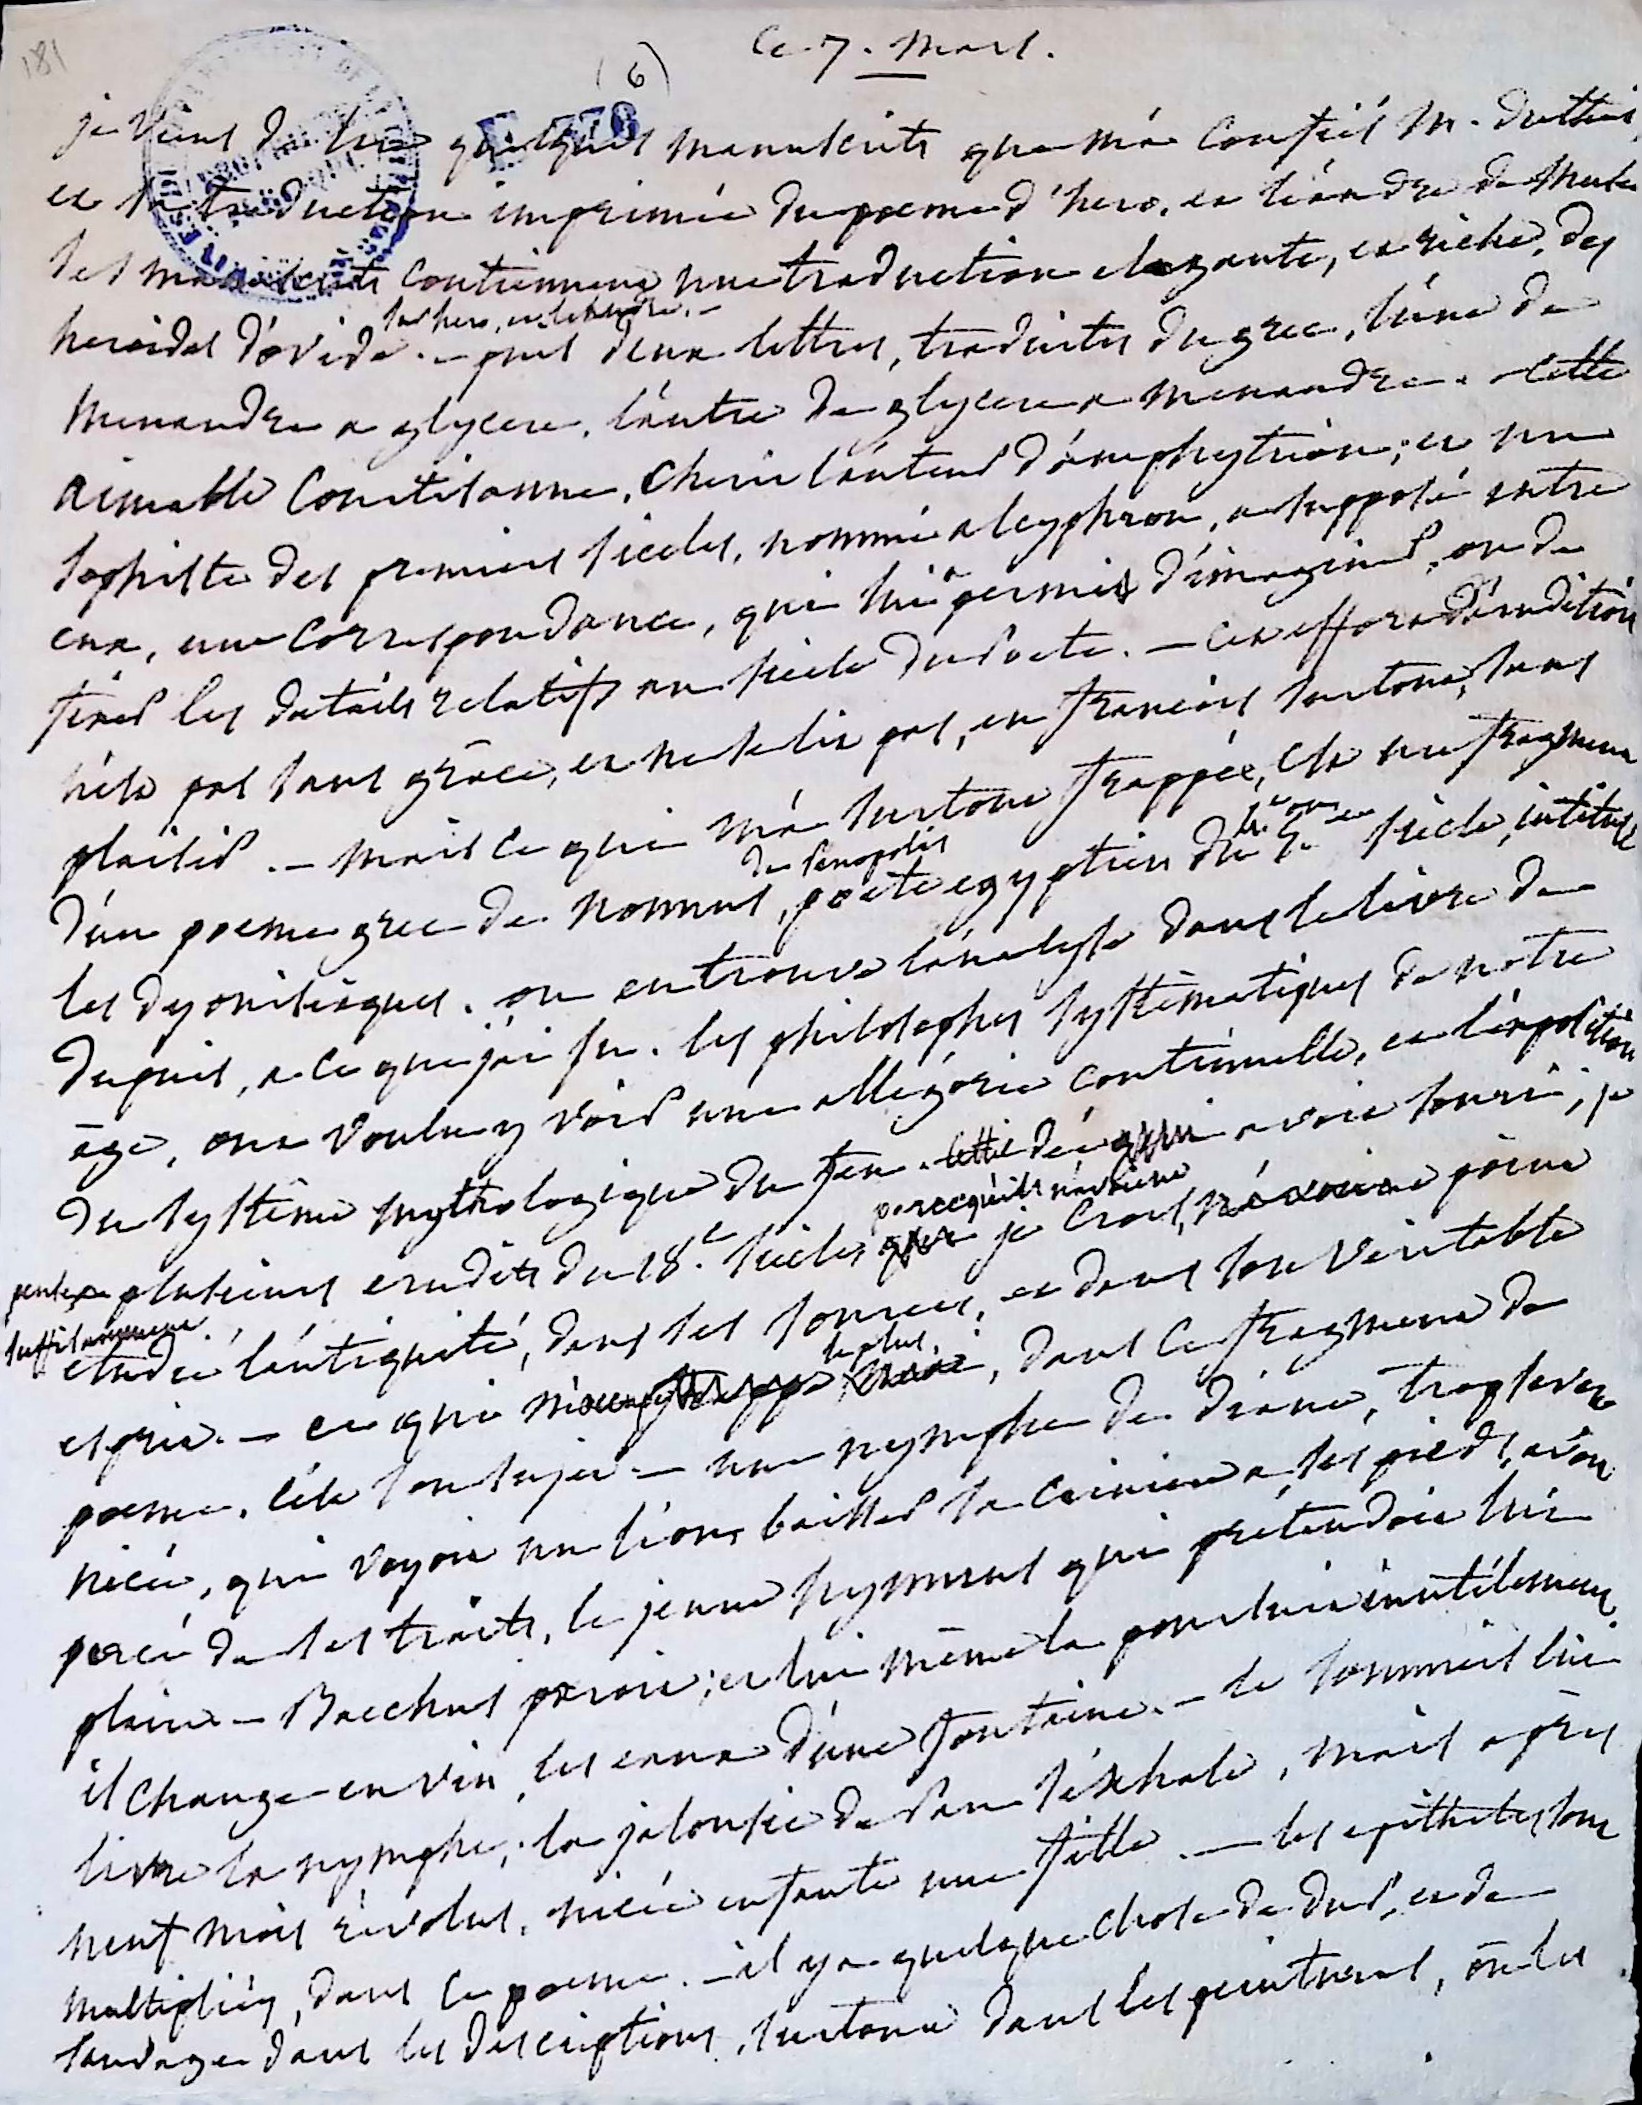 181
(6)
Ce 7. Mars.
je viens de lire quelques manuscrits que m'a confiés M. dutheil,
et sa traduction imprimée du poeme d'hero, et léandre de Musée
ses manuscrits contiennent une traduction elegante, et riche, des
heroides d'ovide
sur hero, et léandre. –
. – puis deux lettres, traduites du grec, l'une de
Menandre a glycere, l'autre de glycere a menandre. – cette
aimable Courtisanne, cherit l'auteur d'amphytrion; et un
sophiste des premiers siecles, nommé alcyphron, a supposé entre
eux, une correspondance, qui lui a permis d'imaginer, ou de
tirer les détails relatifs au siecle du Poete. – cet effort d'erudition
n'est pas sans grâce, et ne se lit pas, en françois surtout, sans
plaisir. – mais ce qui m'a surtout frappée, est un fragment
d'un poeme grec de nonnus,
de Panopolis
poete egyptien du 5e siecle, intitulé
les dyonisiaques. on en trouve l'analyse dans le livre de
dupuis, a ce que j'ai su. les philosophes systématiques de notre
âge, ont voulu y voir une allégorie continuelle, et l'exposition
du systême mythologique du feu. cette idée avoit souri, je
pense a plusieurs erudits du 18e. siecle,
parcequ'ils n'avoient
je crois, point
suffisamment
etudié l'antiquité, dans ses sources, et dans son veritable
esprit. – ce qui
le plus,
dans ce fragment de
poeme, c'est son sujet – une nymphe de diane, trop severe
nicée, qui voyoit un lion, baisser sa criniere a ses pieds, avoit
percé de ses traits, le jeune hymnus qui prétendoit lui
plaire – Bacchus paroit; et lui même la poursuit inutilement,
il change en vin, les eaux d'une fontaine. – le sommeil lui
livre la nymphe; la jalousie de Pan s'exhale, mais après
neuf mois révolus, nicée enfante une fille. – les epithetes sont
multipliées, dans ce poeme. – il y a quelque chose de dur, et de
sauvage dans les descriptions, surtout dans les peintures, on les